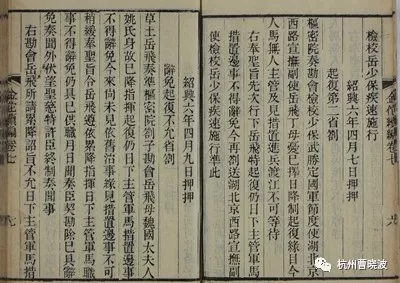 檢校岳少保疾速施行
紹興六年四月七日押押
起復第二省劄
樞密院奏勘會檢校少保武勝定國軍節度使湖北京
西路宣撫副使岳飛丁母憂已擇日降制起復緣目今
人馬無人主管及見措置進兵渡江不可等待
右奉聖旨先次行下岳飛特起復仍日下主管軍馬
措置邊事不得辭免今再劄送湖北京西路宣撫副
使施行準此
紹興六年四月九日押押
辭免起復不允省劄
草土岳飛奏準樞密院劄子勘會岳飛母魏國太夫人
姚氏身故已降指揮起復仍日下主管軍馬措置邊事
不得辭免今來尚未見依舊治事緣見措置邊事不可
稍緩奉聖旨令岳飛遵依累降指揮日下主管軍馬職
事不得辭免仍具已供職月日聞奏臣契勘除已具辭
免奏聞外伏望聖慈許臣終制奏聞事
右勘會岳飛所請累降詔旨不允日下主管軍馬措
金佗續編卷七
九
杭州曹晓波